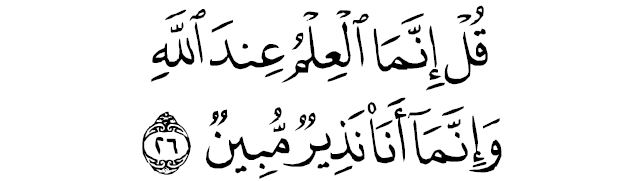 قُلْ إِنَّمَا ٱلْعِلْمُ عِندَ ٱللَّهِ
وَإِنَّمَآ أَنَا۠ نَذِيرٌ مُّبِينٌ ٢٦